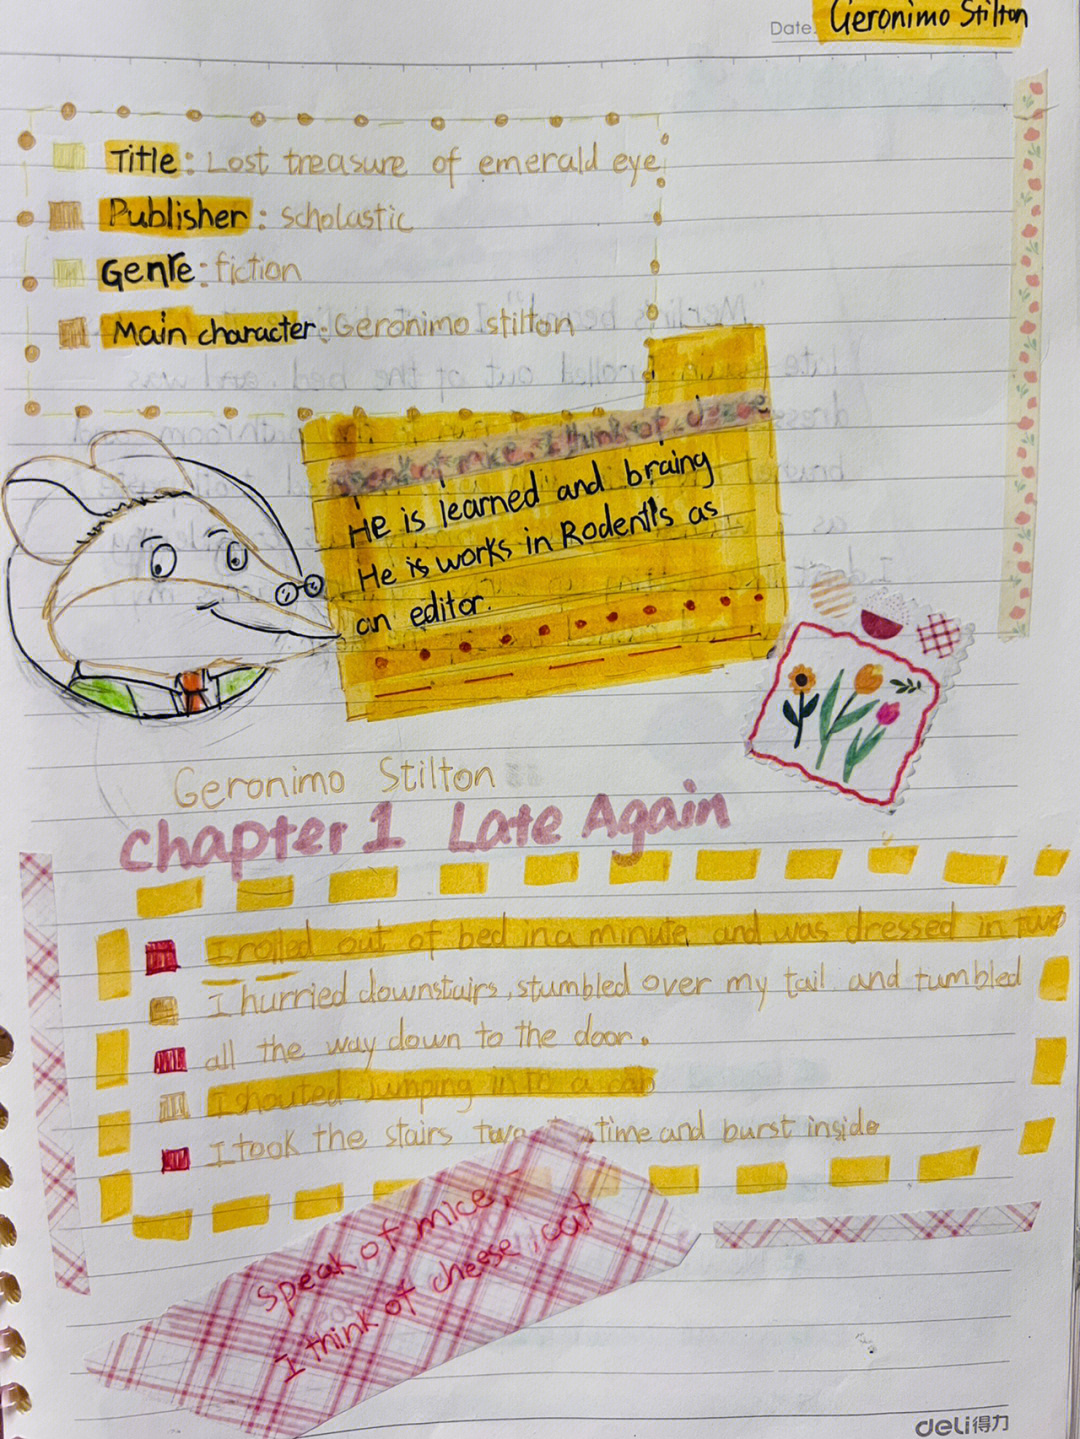 Date:
Geronimo Stilton
Title: Lost treasure of emerald eye
Publisher: scholastic
Genre: fiction
Main character: Geronimo stilton
speak of mice, I think of
He is learned and braing
He is works in Rodent's as
an editor.
Geronimo Stilton
Chapter 1 Late Again
I rolled out of bed in a minute and was dressed in two
I hurried downstairs, stumbled over my tail and tumbled
all the way down to the door.
I shouted jumping into a cab
I took the stairs two time and burst inside
Speak of mice,
I think of cheese, cat
deli得力